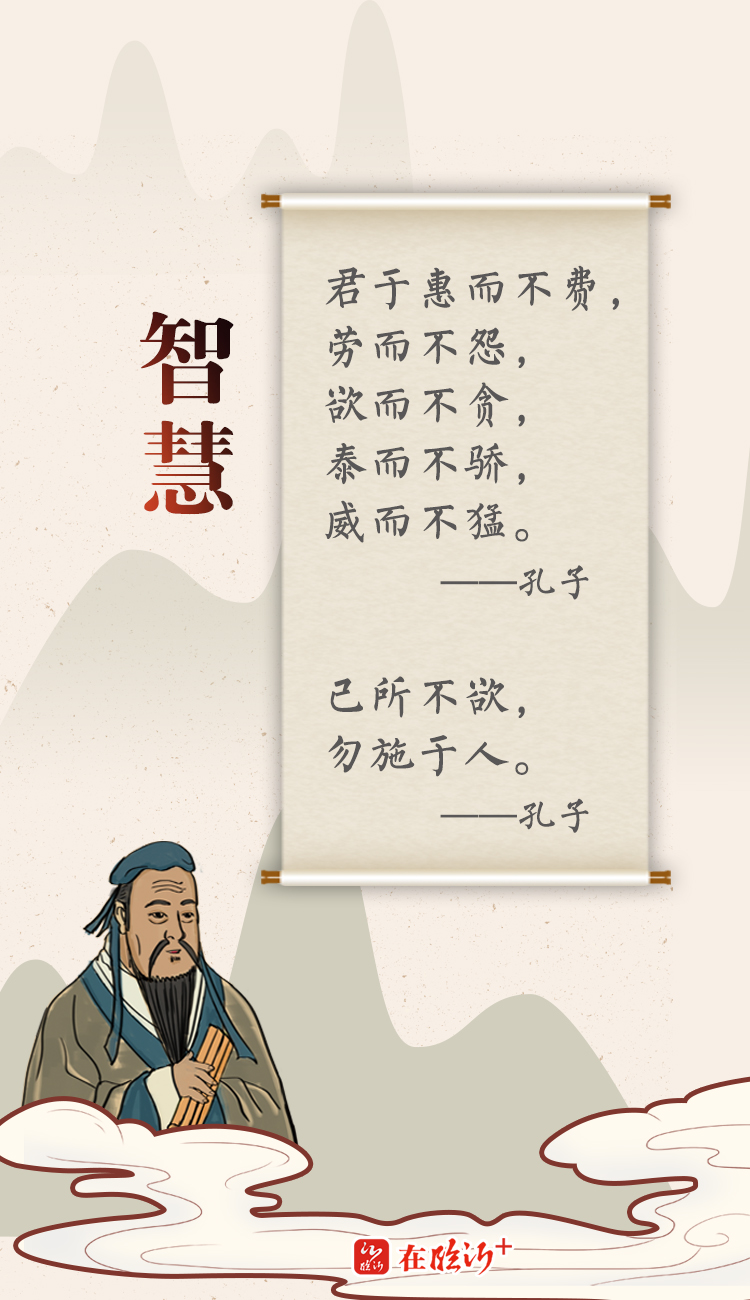 智慧
君于惠而不费，
劳而不怨，
欲而不贪，
泰而不骄，
威而不猛。
——孔子
己所不欲，
勿施于人。
——孔子
临沂
在临沂+